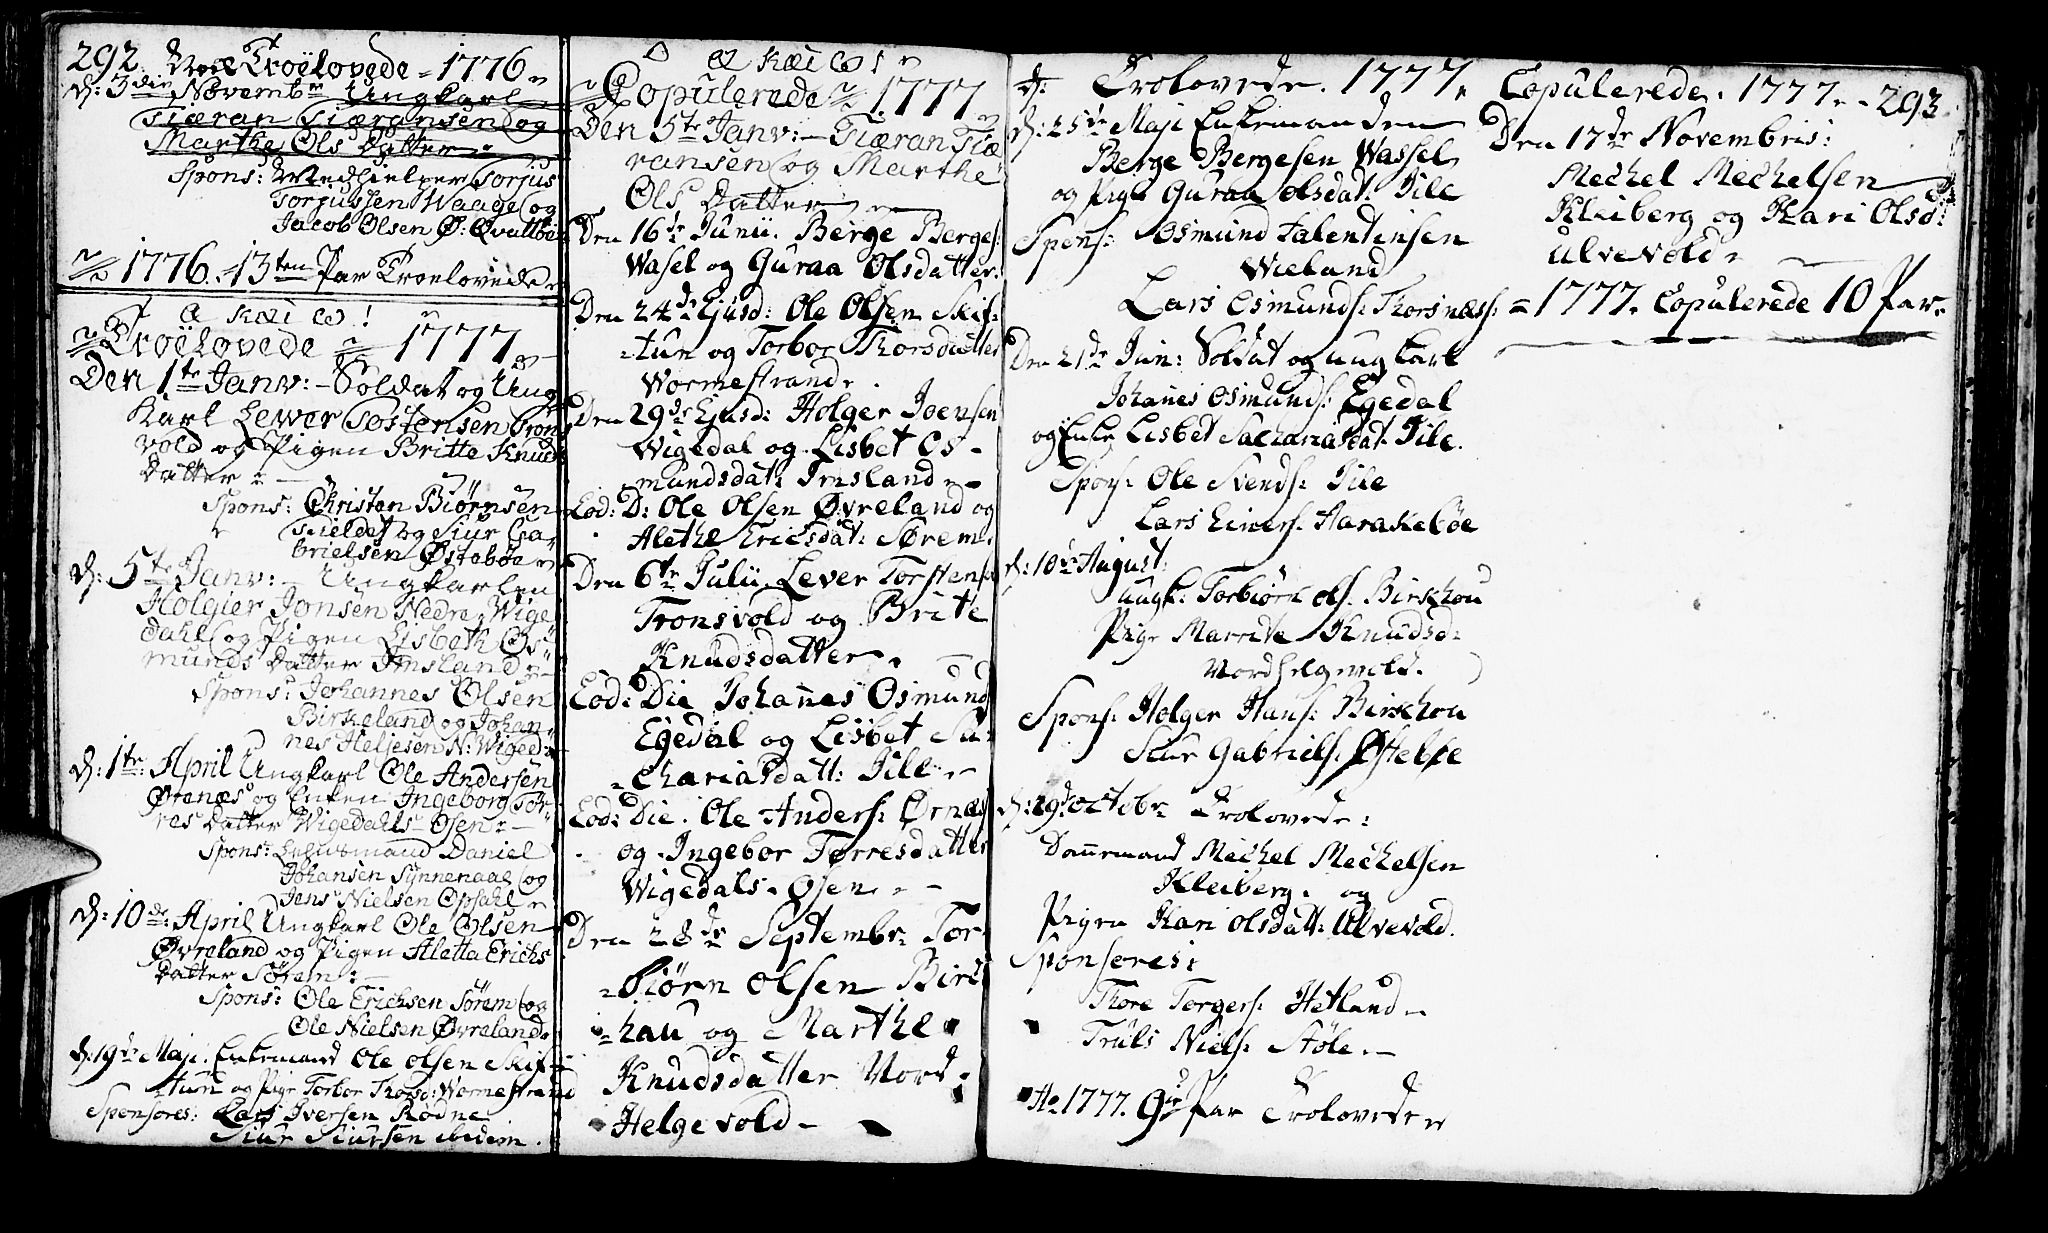 292. Troëlovede 1776
d: 3die Novembr Ungkarl
Tiæran Tiæransen og
Marthe Ols Datter
Spons: Medhielper Torjus
Torjussen Waage og
Jacob Olsen Ø: Qvalbøe
1776. 13ten Par Troelovede
α και ω!
Troëlovede 1777
Den 1te Janv: Soldat og Ung
Karl Lewer Tostensen Trons
vold og Pigen Britte Knuds
Datter
Spons: Christen Biörnsen
og Siur Ga
brielsen Østebøe
d: 5te Janv: Ungkarlen
Holgier Jonsen Nedre Wige
dahl og Pigen Lisbeth Os
munds Datter Imsland
Spons: Johannes Olsen
Birkeland og Johan
nes Heljesen N: Wiged:
d: 1te April Ungkarl Ole Andersen
Ørenæs og Enken Ingeborg Tor
res Datter Wigedahls Osen
Spons: Lehnsmand Daniel
Johansen Synnenaae og
Jens Nielsen Opsahl
d: 10de April Ungkarl Ole Olsen
Øvreland og Pigen Aletta Erichs
Datter Sörem:
Spons: Ole Erichsen Sörem og
Ole Nielsen Øvreland
d: 19de Maji. Enkemand Ole Olsen Skif
tun og Pige Torbor Thorsd: Wormestrand
Sponsores: Lars Iversen Rødne
Siur Siursen ibidem.
α και ω!
Copulerede 1777
Den 5te Janv: Tiæran Tiæ
ransen og Marthe
Ols Datter
Den 16de Junii. Berge Berges:
Wasel og Guraa Olsdatter.
Den 24de Ejusd: Ole Olsen Skif:
tun og Torbor Thorsdatter
Wormestrand.
Den 29de Ejusd: Holger Joensen
Wigedal og Lisbet Os
mundsdat: Imsland
Eod: D: Ole Olsen Øvreland og
Alethe Ericsdat: Sørem.
Den 6te Julii. Lever Torstens:
Tronsvold og Brite
Knudsdatter.
Eod: Die Johannes Osmund
Egedal og Lisbet Sa
chariasdatt: Jile
Eod: Die. Ole Anders: Ørnæs
og Ingebor Torresdatter
Wigedals Osen.
Den 28de Septembr: Tor
biörn Olsen Birk
hau og Marthe
Knudsdatter Nord
Helgevold
d: Trolovede. 1777.
d: 25de Maji Enkemanden
Berge Bergesen Wassel
og Pige Guraa Olsdat: Jile
Spons: Osmund Falentinsen
Wieland
Lars Osmunds: Thorsnæss:
Den 21de Jun: Soldat og ungkarl
Johanes Osmunds: Egedal
og Enke Lisbet Sachariasdat: Jile.
Spons: Ole Svends: Jile
Lars Einers: Aarakebøe
d: 10de August:
ungk: Torbiörn Ols: Birkhou
Pige Marrite Knudsd:
Nordhelgevold.
Spons: Holger Hans: Birkhou
Siur Gabriels:
d: 29de Octobr Trolovede:
Dannemand Mechel Mechelsen
Kleiberg. og
Pigen Kari Olsdatt: Ulvevold.
Sponsores:
Thore Torgers: Hetland
Truls Niels: Støle.
Ao 1777. 9ie Par Trolovede
Copulerede. 1777. 293.
Den 17de Novembris:
Mechel Mechelsen
Kleiberg og Kari Olsd:
Ulvevold
1777. Copulerede 10 Par.